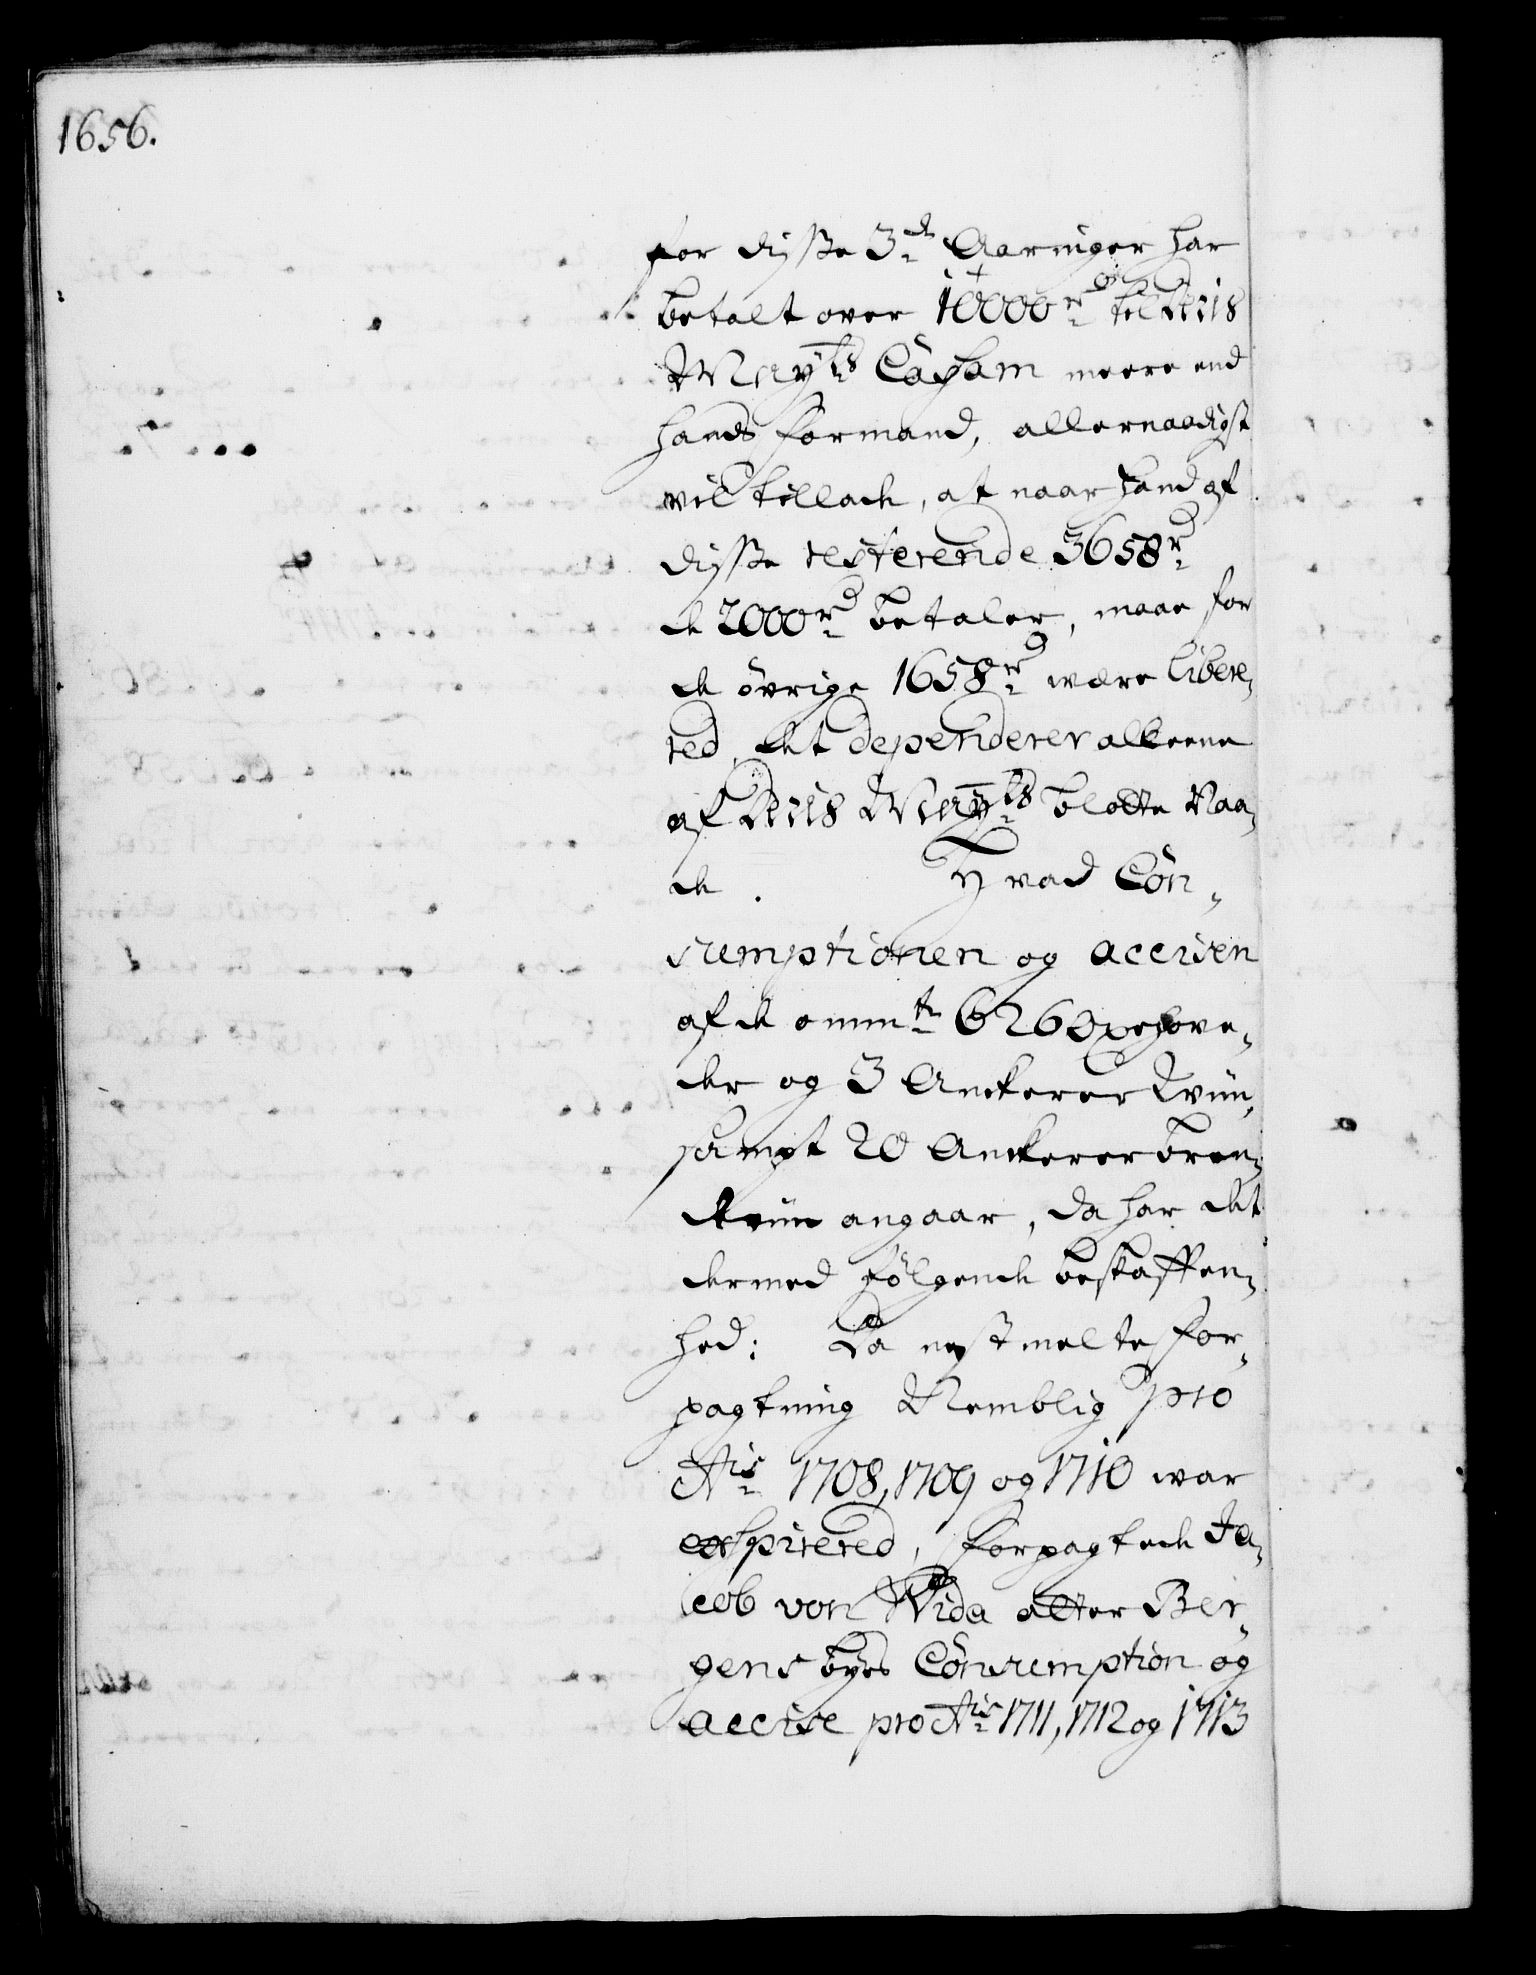 1656.
for disse 3de Aaringer har
betalt over 10000 rd til Deris
Mayts Cassam meere end
hands formand, allernaadigst
vil tillade, at naar hand af
disse resterende 3658 rd
de 2000 rd betaler, maae for
de övrige 1658 rd være libere,
red, det dependerer alleene
af Deris Mayts blotte Naa,
de. Hvad Con,
sumptionen og accisen
af de omm.te 6260 oxehove,
der og 3 Anckerer Viin,
sampt 20 Anckerer bren,
deviin angaar, da har det
dermed fölgende beskaffen,
hed: Da nestmelte for,
pagtning Nemblig pro
Ais 1708, 1709 og 1710 war
exspirered, forpagtede Ja,
cob von Wida atter Ber,
gens byes Consumption og
accise pro Ais 1711, 1712 og 1713